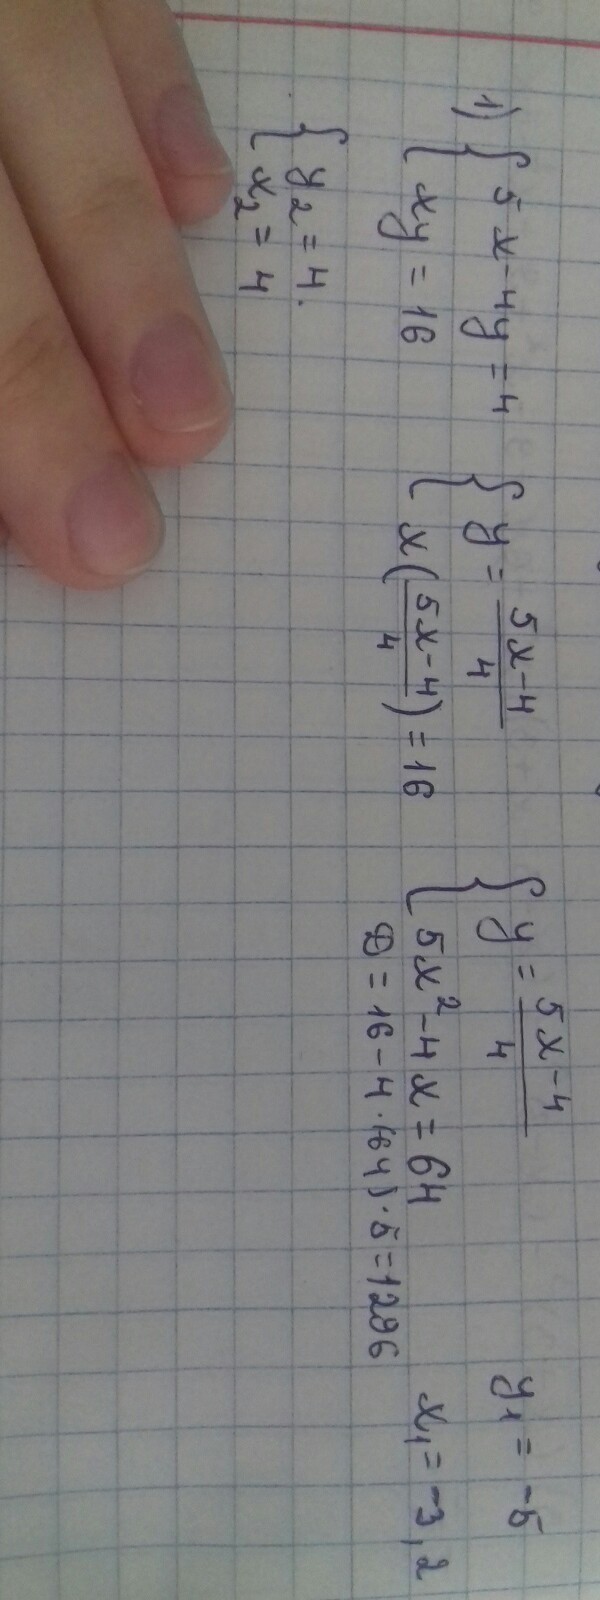 1) { 5x-4y=4
xy=16
{ y=(5x-4)/4
x((5x-4)/4)=16
{ y=(5x-4)/4
5x²-4x=64
D=16-4·(64)·5=1296
y₁=-5
x₁=-3,2
{ y₂=4.
x₂=4